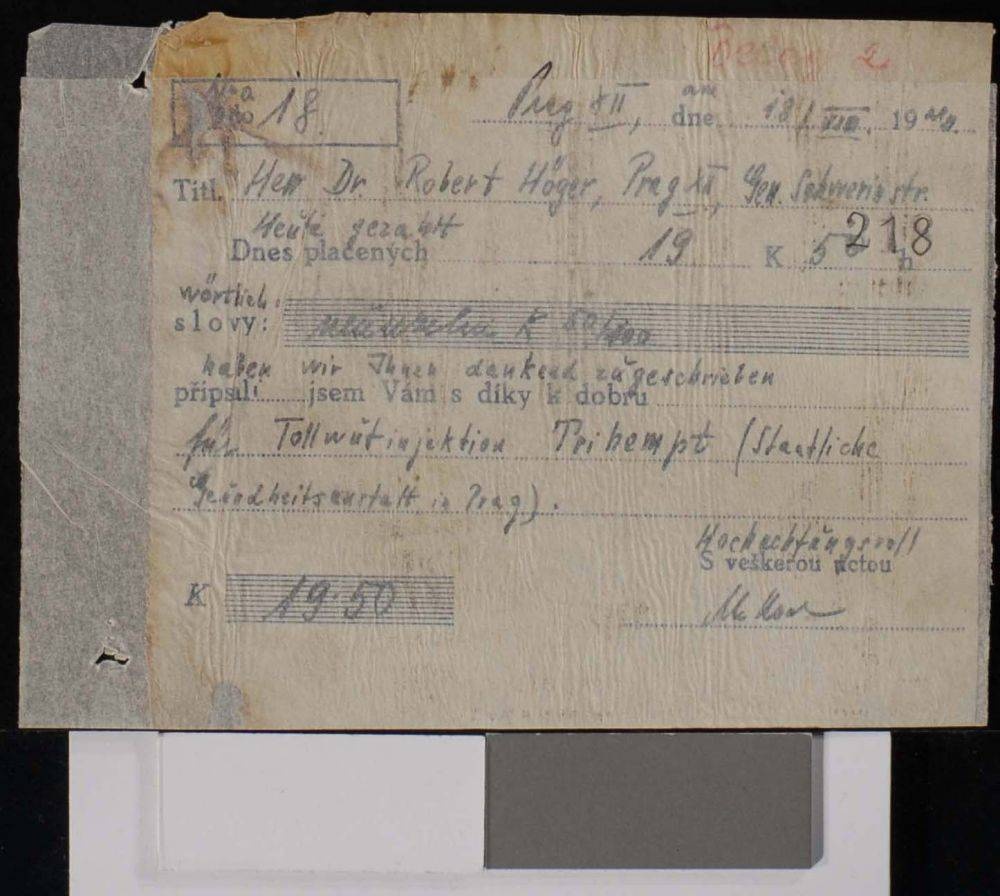 18.
Prag XII, am
dne 18/VIII. 19
Titl. Herr Dr. Robert Höger, Prag XII, Gen. Schwerinstr.
Heute gezahlt
218
Dnes placených 19 K 50 h
wörtlich:
slovy: neunzehn K 50/100
haben wir Ihnen dankend zugeschrieben
připsal jsem Vám s díky k dobru
für Tollwutinjektion Prihempt (Staatliche
Gesundheitsanstalt in Prag).
Hochachtungsvoll
S veškerou úctou
K 19·50